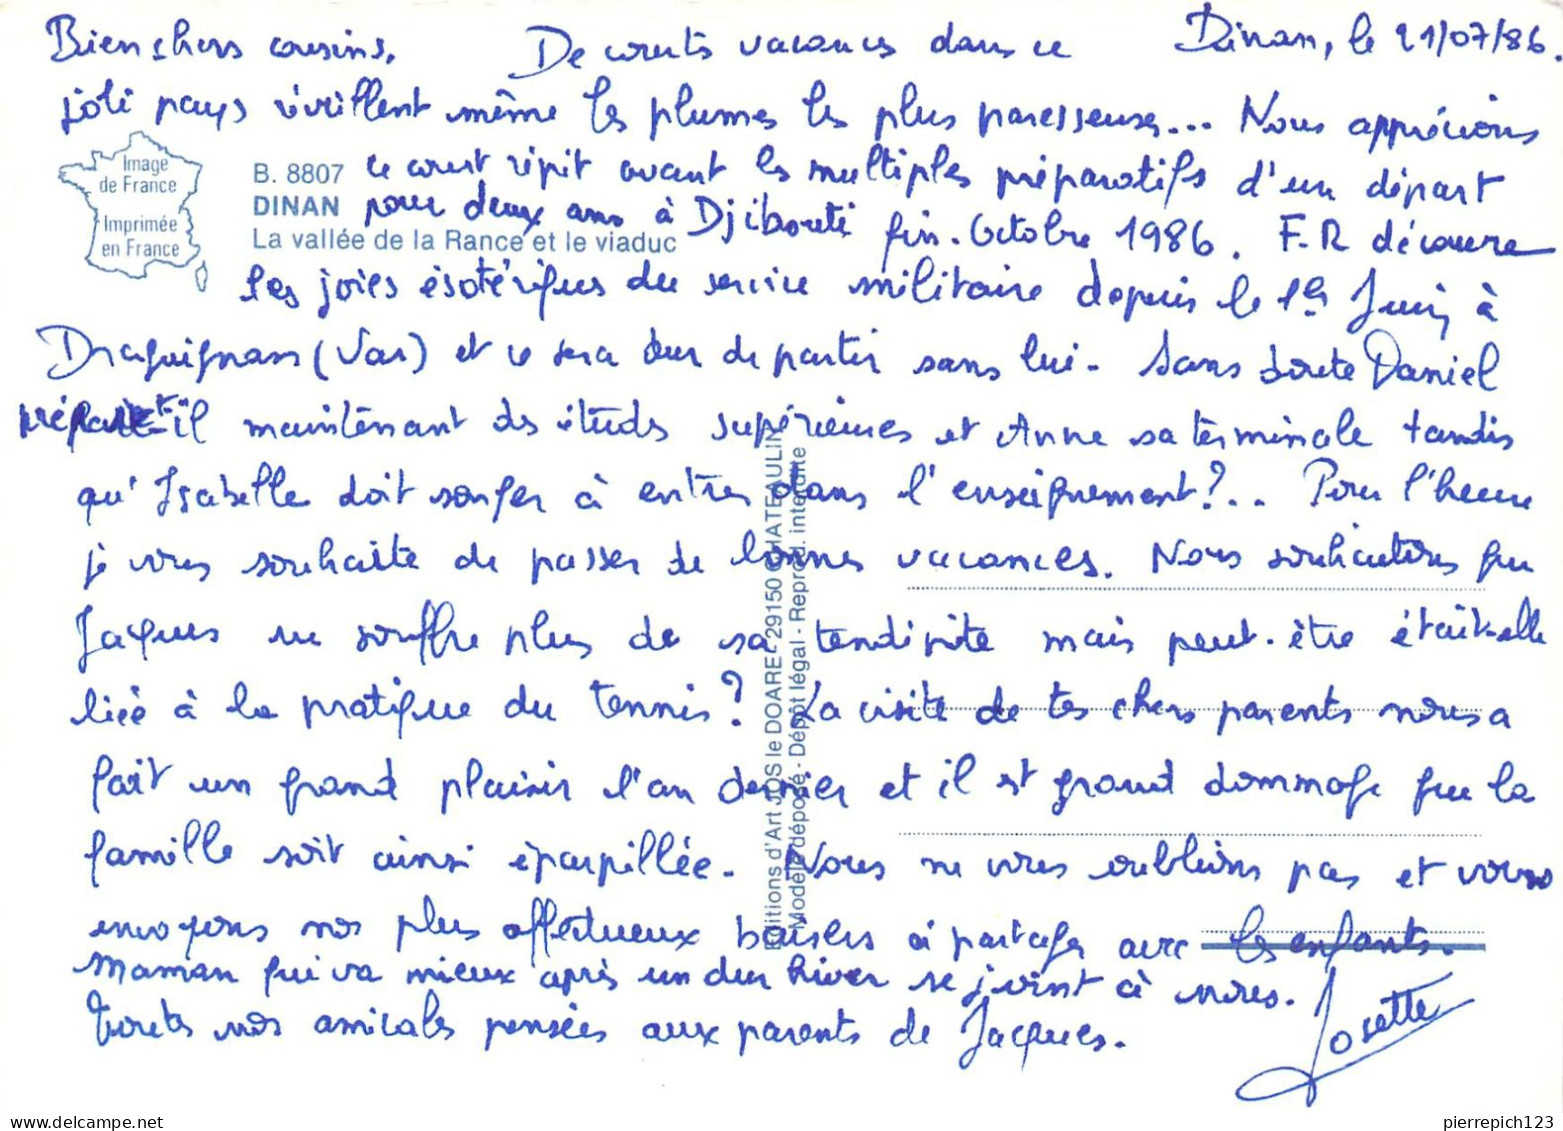 Dinan, le 21/07/86.
Bien chers cousins, De courts vacances dans ce
joli pays réveillent même les plumes les plus paresseuses... Nous apprécions
ce court répit avant les multiples préparatifs d'un départ
pour deux ans à Djibouti fin-Octobre 1986. F.R découvre
les joies ésotériques du service militaire depuis le 1er Juin à
Draguignan (Var) et ce sera dur de partir sans lui. Sans doute Daniel
prépare-t-il maintenant des études supérieures et Anne sa terminale tandis
qu'Isabelle doit songer à entrer dans l'enseignement?... Pour l'heure
je vous souhaite de passer de bonnes vacances. Nous souhaitons que
Jacques ne souffre plus de sa tendinite mais peut-être était-elle
liée à la pratique du tennis? La visite de tes chers parents nous a
fait un grand plaisir l'an dernier et il est grand dommage que la
famille soit ainsi éparpillée. Nous ne vous oublions pas et vous
envoyons nos plus affectueux baisers à partager avec les enfants.
Maman qui va mieux après un dur hiver se joint à nous.
Toutes nos amicales pensées aux parents de Jacques.
Josette
Image
de France
Imprimée
en France
B. 8807
DINAN
La vallée de la Rance et le viaduc
Editions d'Art JOS le DOARE - 29150 CHATEAULIN
Modèle déposé - Dépôt légal - Reprod. interdite
pierrepich123